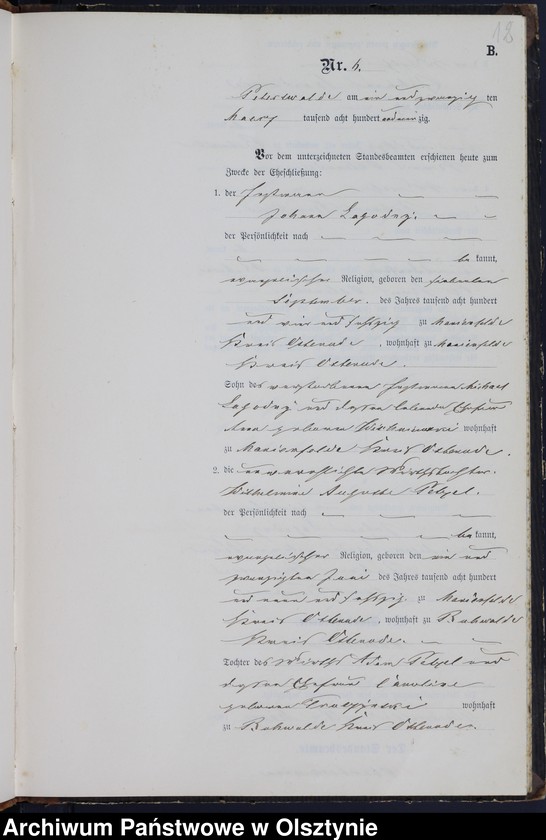 18
B.
Nr. 4.
Peterswalde am ein und zwanzig ten
Maerz tausend acht hundert und neunzig.
Vor dem unterzeichneten Standesbeamten erschienen heute zum
Zwecke der Eheschließung:
1. der Instmann
Johann
der Persönlichkeit nach
be kannt,
evangelischer Religion, geboren den siebenten
September, des Jahres tausend acht hundert
und vier und sechszig zu Marienfelde
Kreis Osterode, wohnhaft zu Marienfelde
Kreis Osterode.
Sohn des verstorbenen Instmann Michael
und dessen Ehefrau
Anna geborene wohnhaft
zu Marienfelde Kreis Osterode.
2. die unverehelichte Wirthstochter
Wilhelmine Auguste
der Persönlichkeit nach
be kannt,
evangelischer Religion, geboren den ein und
zwanzigten Juni des Jahres tausend acht hundert
und neun und sechszig zu Marienfelde
Kreis Osterode, wohnhaft zu
Kreis Osterode.
Tochter des Wirths Adam und
dessen Ehefrau Caroline
geborene wohnhaft
zu Kreis Osterode.
Archiwum Państwowe w Olsztynie